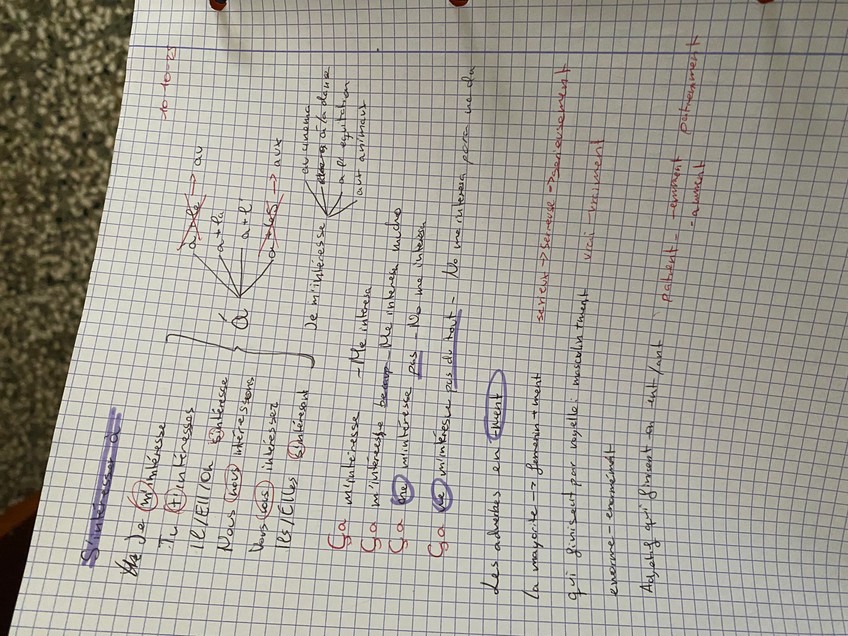 10-10-25
S'intéresser à
Je m'intéresse
Tu t'intéresses
Il/Ell/On s'intéresse
Nous nous intéressons
Vous vous intéresser
Ils/Elles s'intéresent
à
a + le → au
a + la
a + l'
a + les → aux
Je m'intéresse
au cinema
à la danse
a l' equitation
aux animaux
Ça m'intéresse - Me interesa
Ça m'intéresse beaucp - Me interesa mucho
Ça ne m'intéresse pas - No me interesa
Ça ne m'intéresse pas du tout - No me interesa para na da
Les adverbes en +ment
La mayorite → femenin + ment serieux → serieuse → serieusement
qui finisent par voyelle: masculin + ment vrai vraiment
enorme - enormément
Adjetif qui finisent en ent/ant patient - -emment patiemment
- amment